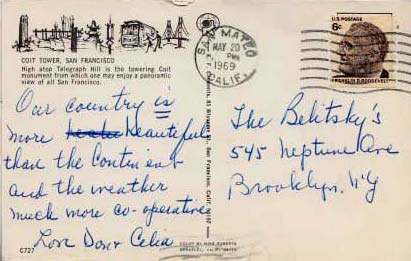 COIT TOWER, SAN FRANCISCO
High atop Telegraph Hill is the towering Coit
monument from which one may enjoy a panoramic
view of all San Francisco.
Our country is
more beautiful
than the Continent
and the weather
much more co-operative
Love Don & Celia
C727
COLOR BY MIKE ROBERTS
SAN MATEO
MAY 20
PM
1969
CALIF.
U.S. POSTAGE
6¢
FRANKLIN D. ROOSEVELT
The Belitsky's
545 Neptune Ave
Brooklyn, NY